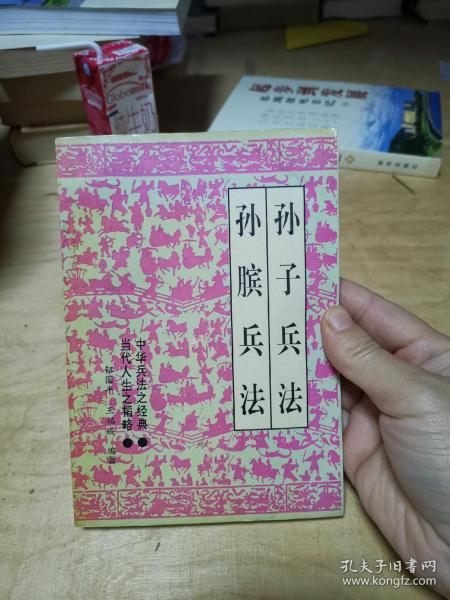 孙子兵法
孙膑兵法
中华兵法之经典
当代人生之韬略
编著
Globemilk
纯牛奶
起步到发展
孔夫子旧书网
www.kongfz.com